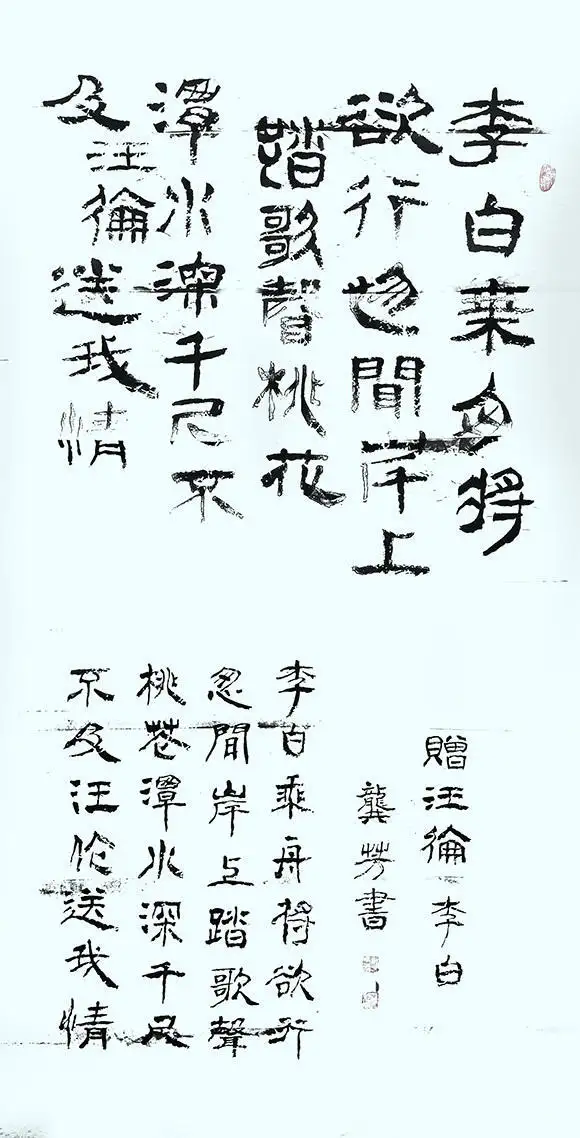 李白乘舟将
欲行忽聞岸上
踏歌聲桃花
潭水深千尺不
及汪倫送我情
贈汪倫 李白
龔芳書
李白乘舟将欲行
忽聞岸上踏歌聲
桃花潭水深千尺
不及汪伦送我情